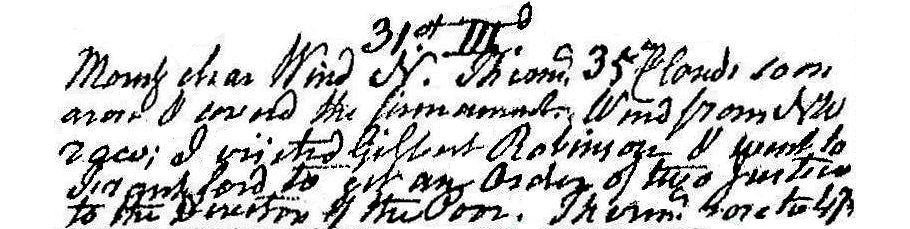 31st IIId
Morng clear Wind N. Thermr. 35 Clouds soon
arose & coverd the firmament. Wind from NW
raw; I visited Gilbert Robinson & went to
Frankford to get an Order of two Justices
to the Director of the Poor. Thermr. rose to 47